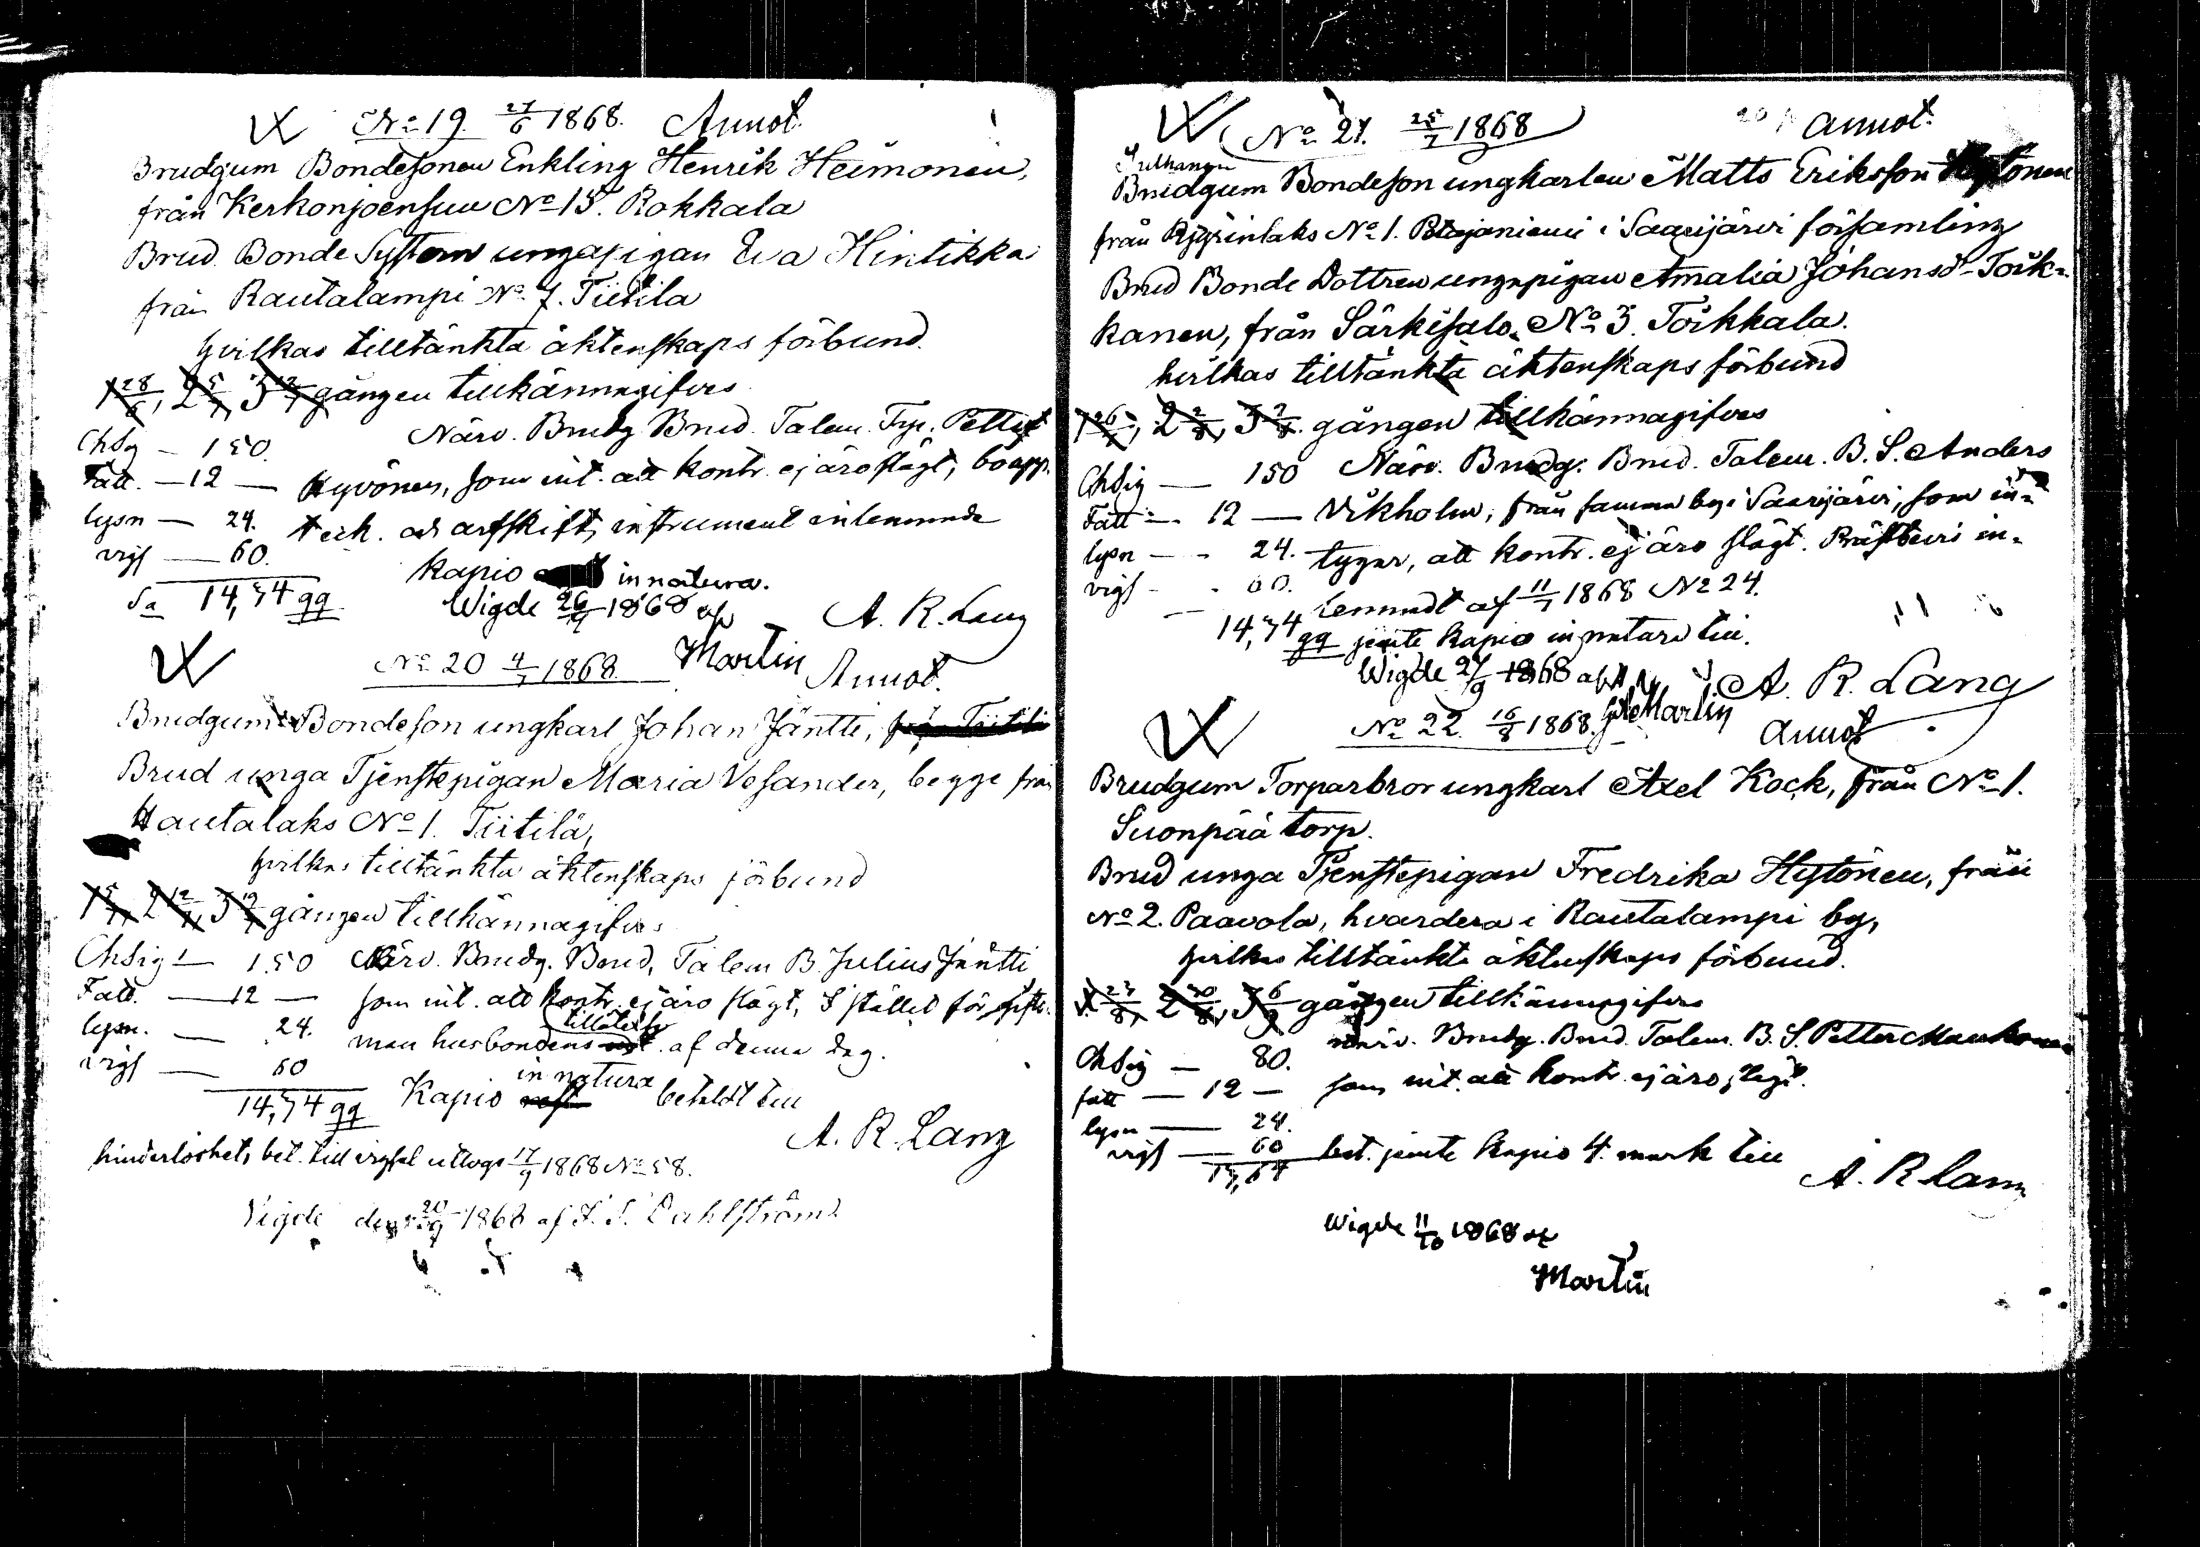 No 19. 27/6 1868. Annot.
Brudgum Bondesonen Enkling Henrik Heimonen,
från Kerkonjoensuu No 15. Rokkala
Brud Bonde Systern unga pigan Eva Hintikka
från Rautalampi No 7. Tiitila
hvilkas tilltänkta äktenskaps förbund
1 28/6, 2 5/7, 3 12/7 gången tillkännagifves
Närv. Brudg. Brud. Talem. Petter
Chsig — 150.
Fatt. — 12 — Hyvönen, som int. att kontr. ej äro slägt, bouppt.
lysn — 24. teck. och arfskifts instrument inlemnade
vigs — 60.
Kapio in natura.
Sa 14,74 qq
Wigde 26/9 1868 af
Martin
A. R. Lang
No 20 4/7 1868. Annot.
Brudgum Bondeson ungkarl Johan Jäntti, från Tiitilä
Brud unga Tjenstepigan Maria Vesander, begge från
Hautalaks No 1. Tiitilä,
hvilkas tilltänkta äktenskaps förbund
1 5/7, 2 12/7, 3 19/7 gången tillkännagifves
Chsig — 150 Närv. Brudg. Brud, Talem B. Julius Jäntti
Fatt. — 12 — som int. att kontr. ej äro slägt, I stället för gifto-
lysn. — 24. man husbondens tillåtelse af denna dag.
vigs — 60
14,74 qq Kapio in natura betaldt till
A. R. Lang
hinderlöshets bet. till vigsel uttogs 17/9 1868 No 58.
Vigde den 20/9 1868 af Dahlström
No 21. 25/7 1868 Annot.
Brudgum Bondeson ungkarlen Matts Eriksson Hytönen
från No 1. i Saarijärvi församling
Brud Bonde Dottren ungapigan Amalia Johansdr Törk-
kanen, från Särkisalo No 3. Törkkala.
hvilkas tilltänkta äktenskaps förbund
1 26/7, 2 2/8, 3 9/8 gången tillkännagifves
Chsig — 150 Närv. Brudg. Brud. Talem. B. S. Anders
Fatt — 12 — Vikholm, från samma by i Saarijärvi, som in-
lysn — 24. tygar, att kontr. ej äro slägt. Prästbevis in-
vigs — 60. lemnadt af 11/7 1868 No 24.
14,74 qq jemte kapio in natura till.
Wigde 27/9 1868 af
Martin
A. R. Lang
No 22. 16/8 1868. Annot
Brudgum Torparbror ungkarl Axel Kock, från No 1.
Suonpää torp.
Brud unga Tjenstepigan Fredrika Hytönen, från
No 2. Paavola, hvardera i Rautalampi by,
hvilkas tilltänkta äktenskaps förbund.
1 23/8, 2 30/8, 3 6/9 gången tillkännagifves
närv. Brudg. Brud. Talem. B. S. Petter
Chsig — 80.
fatt — 12 — som int. att kontr. ej äro slägt.
lysn — 24.
vigs — 60 bet. jemte kapio 4. mark till
A. R. Lang
Wigde 11/10 1868 af
Martin